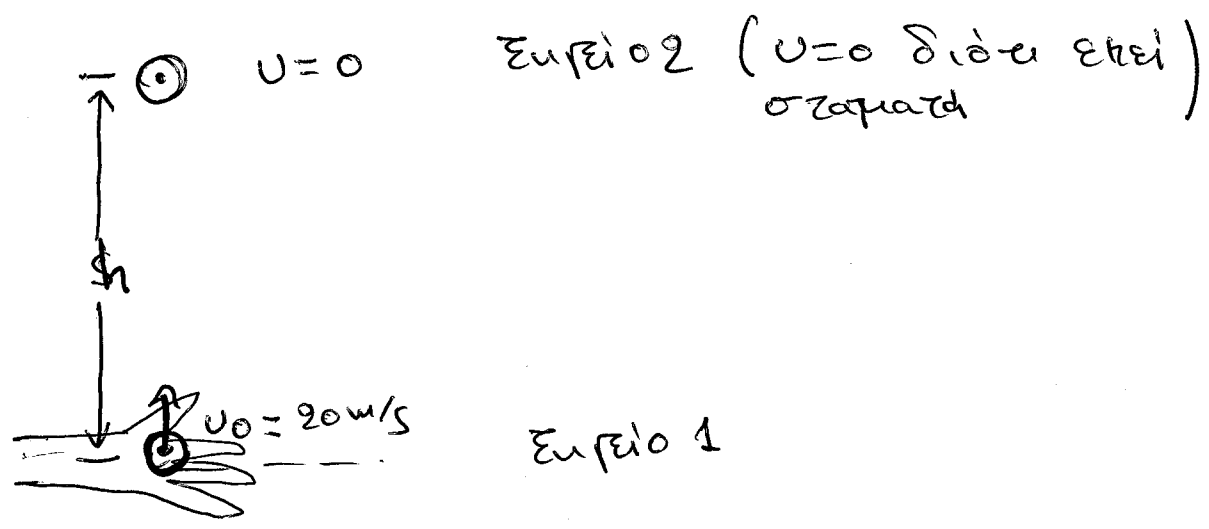 υ=0 Σημείο 2 (υ=0 διότι εκεί
σταματά)
h
υ0 = 20 m/s
Σημείο 1